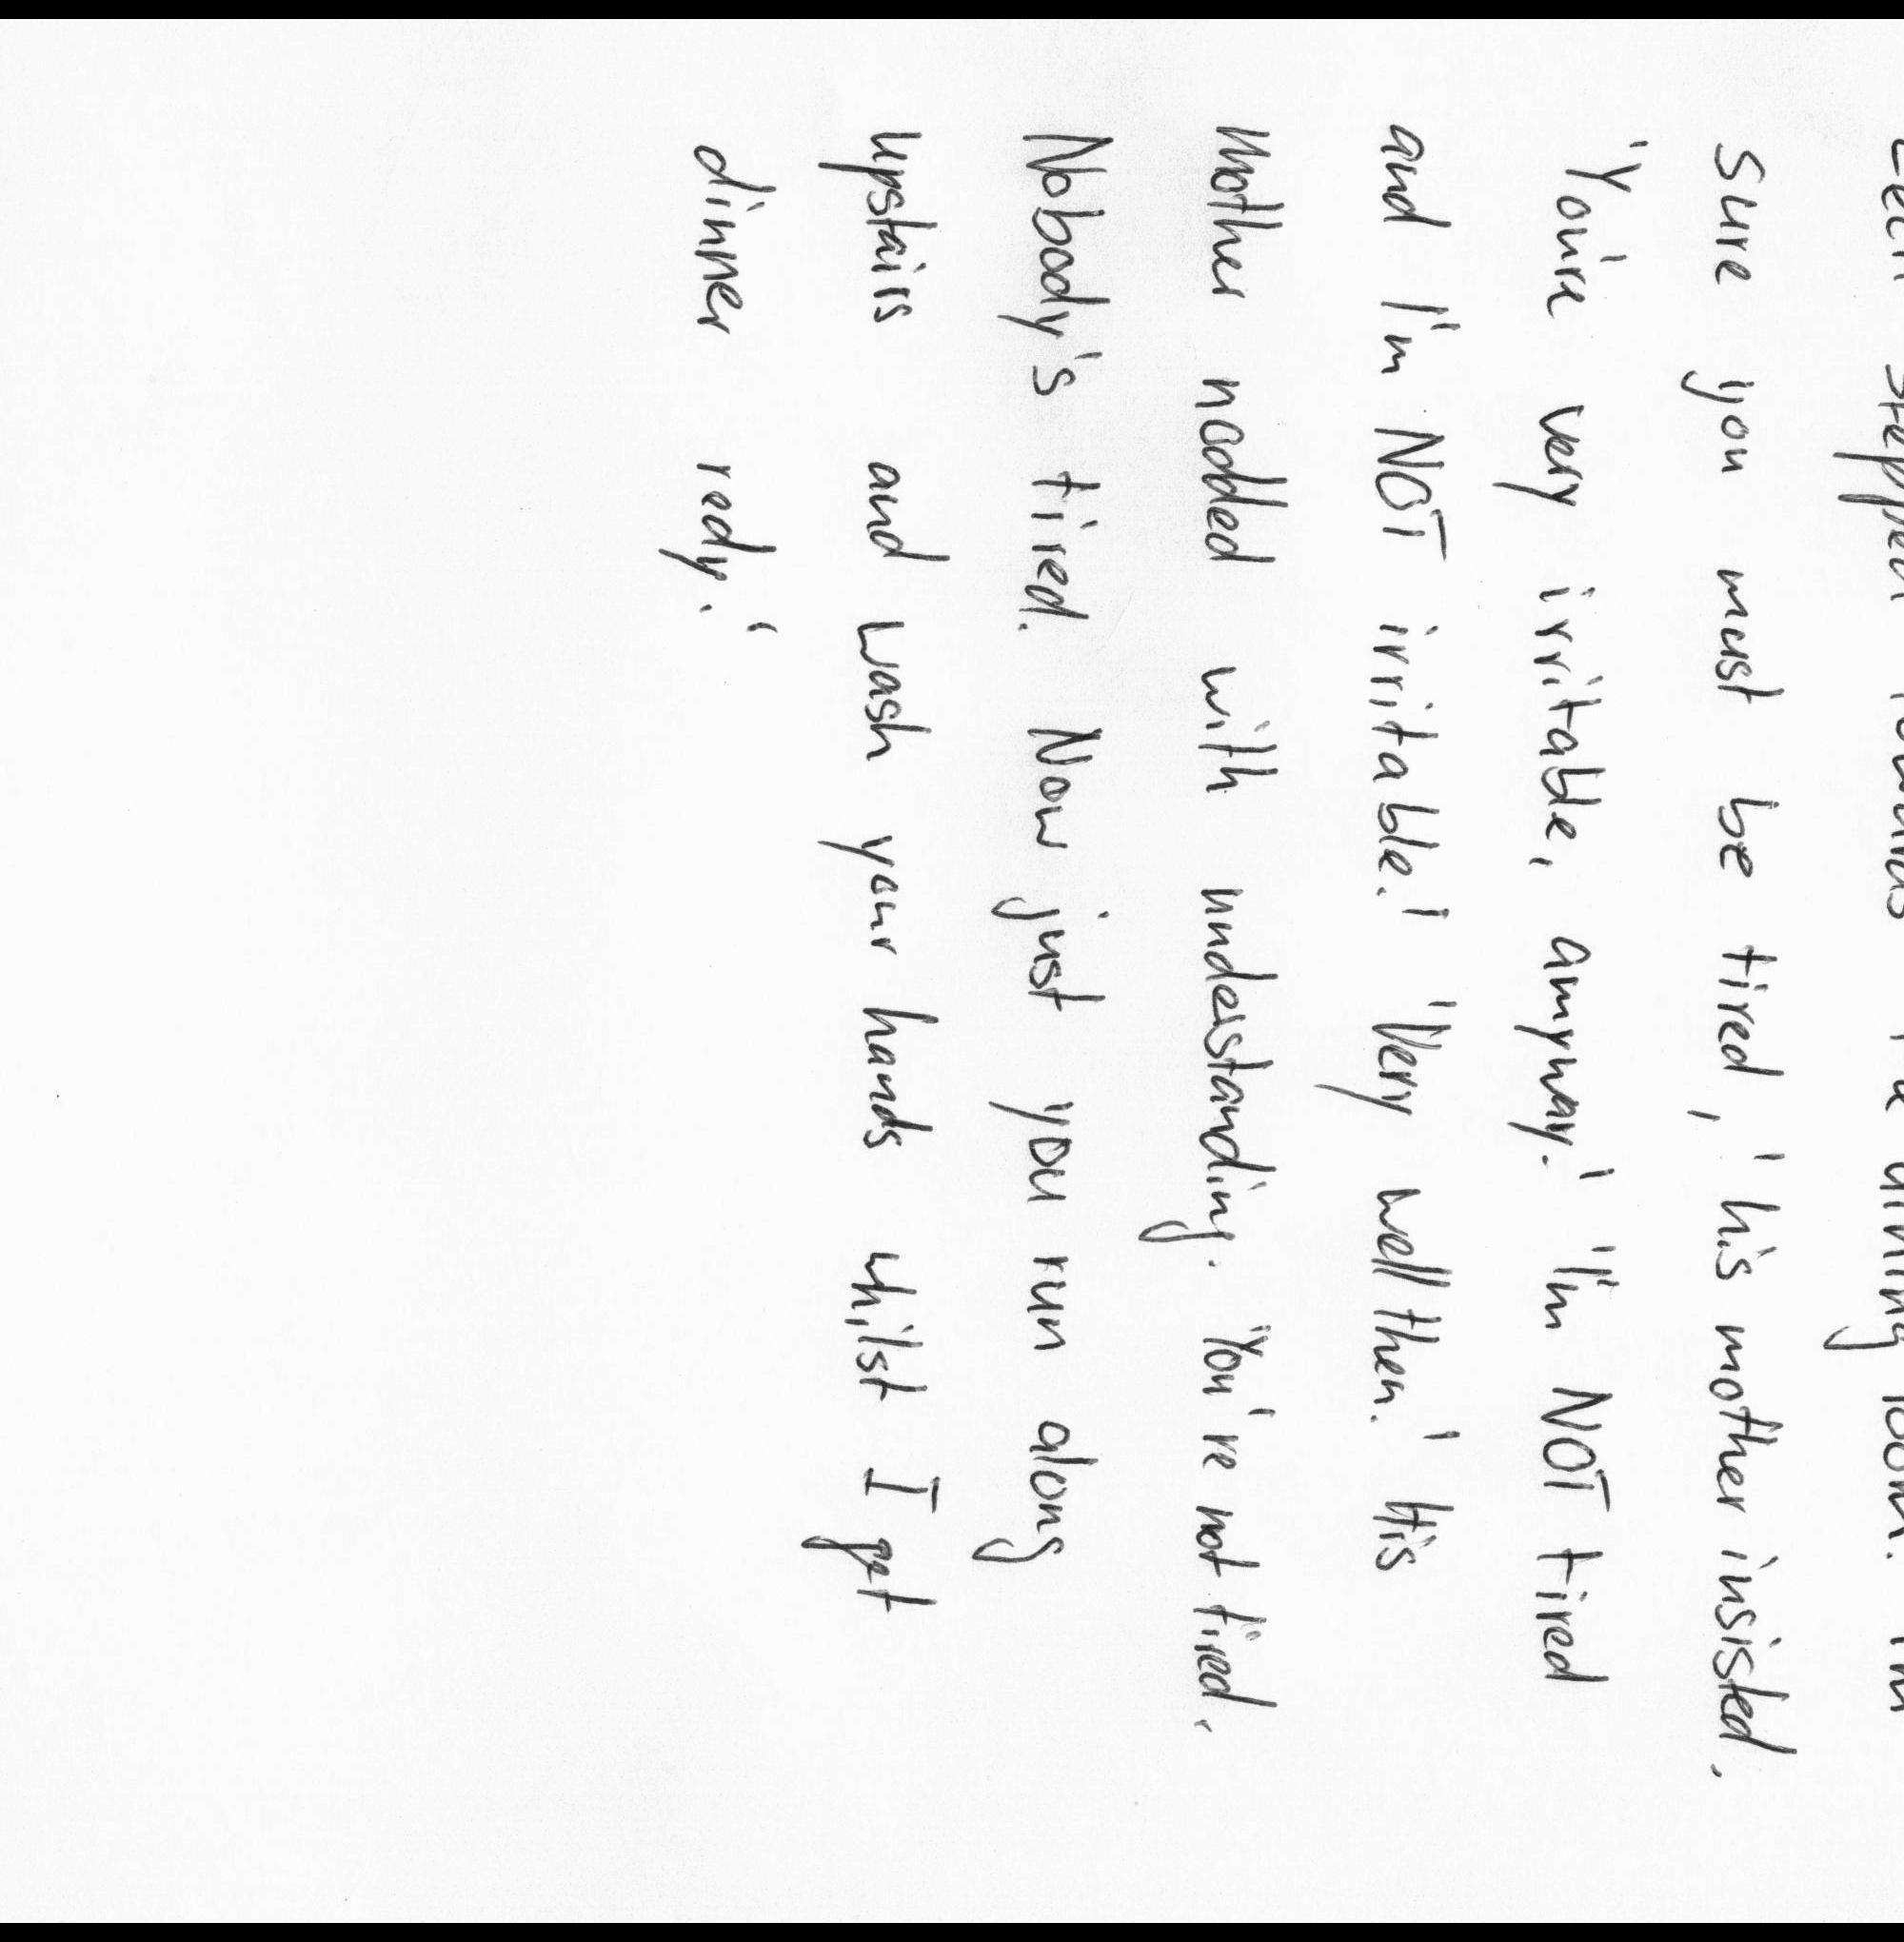 sure you must be tired,' his mother insisted.
'You're very irritable, amyway.' 'I'm NOT tired
and I'm NOT irritable.' 'Very well then.' His
mother nodded with understanding. 'You're not tired.
Nobody's tired. Now just you run along
upstairs and wash your hands whilst I get
dinner redy.'